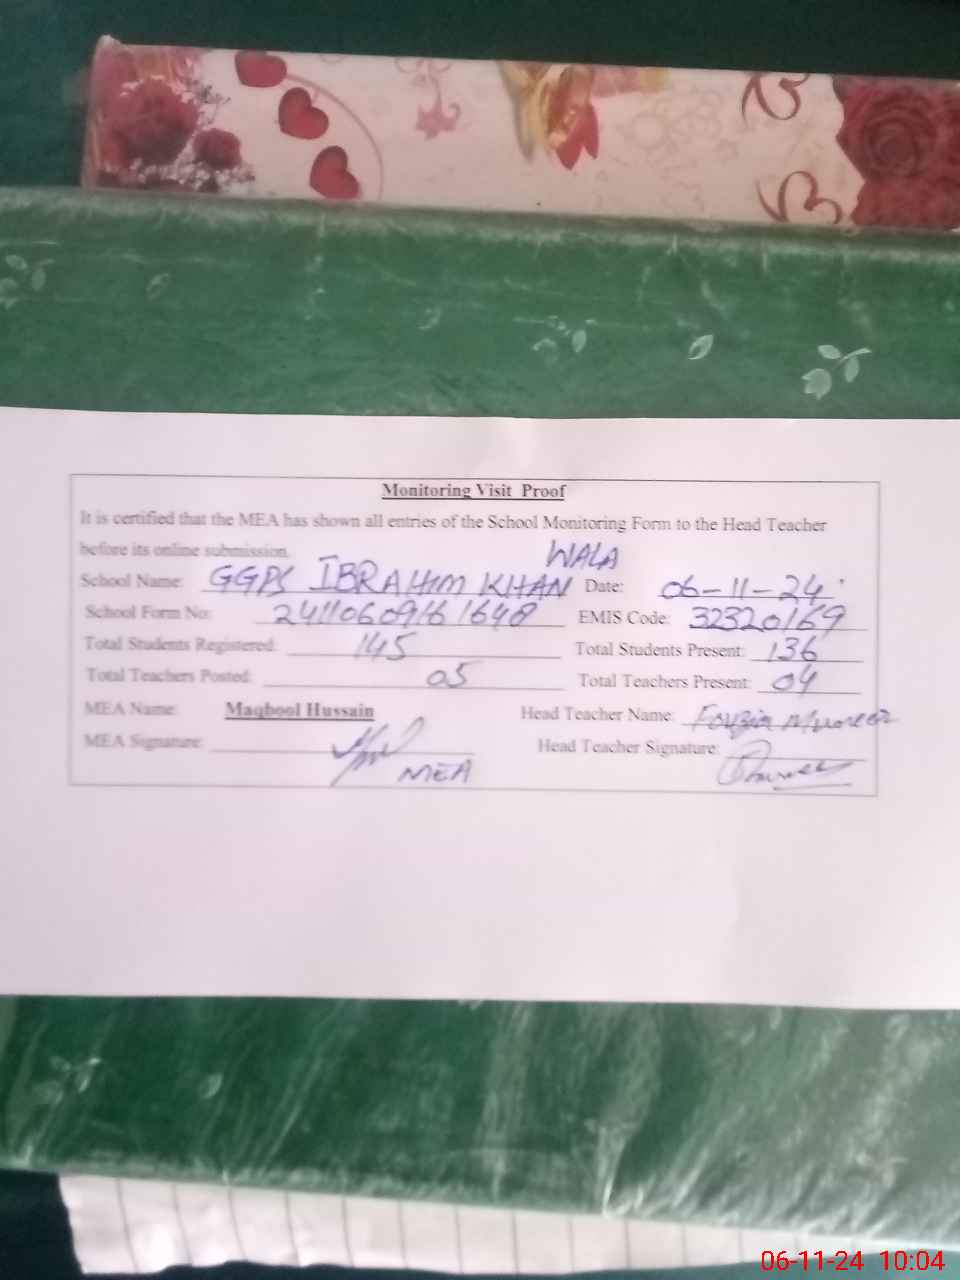 Monitoring Visit Proof
It is certified that the MEA has shown all entries of the School Monitoring Form to the Head Teacher
before its online submission.
School Name: GGPS IBRAHIM KHAN WALA Date: 06-11-24
School Form No: 2411060916 1648 EMIS Code: 32320169
Total Students Registered: 145 Total Students Present: 136
Total Teachers Posted: 05 Total Teachers Present: 04
MEA Name: Maqbool Hussain Head Teacher Name: Fouzia
MEA Signature: Head Teacher Signature:
MEA
06-11-24 10:04